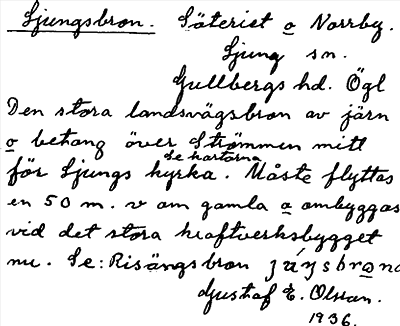 Ljungsbron. Säteriet o Norrby.
Ljung sn.
Gullbergs hd. Ögl
Den stora landsvägsbron av järn
o betong över Strömmen mitt
se kartorna
för Ljungs kyrka. Måste flyttas
en 50 m. v om gamla o ombyggas
vid det stora kraftverksbygget
nu. Se: Risängsbron
Gustaf E. Olsson.
1936.